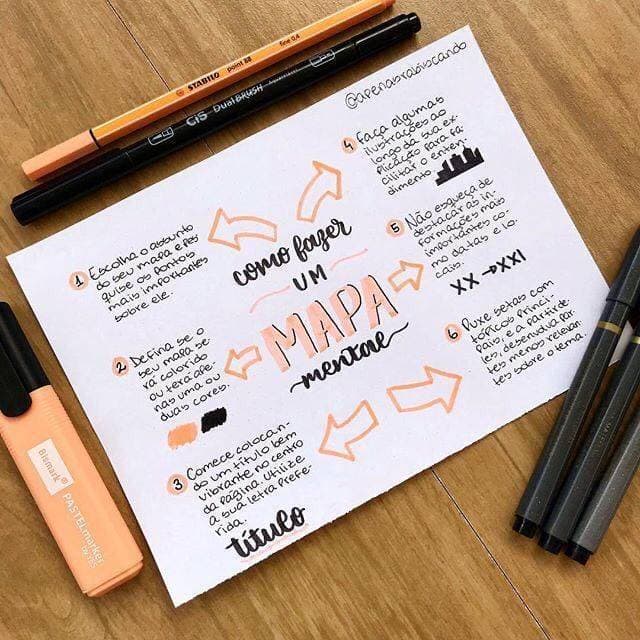 STABILO point 88 fine 0,4
CiS DUALBRUSH
@apenasrabiscando
como fazer
um
MAPA
mental
1 Escolha o assunto
do seu mapa e pes
quise os pontos
mais importantes
sobre ele.
2 Defina se o
seu mapa se
rá colorido
ou terá ape
nas uma ou
duas cores.
3 Comece colocan-
do um título bem
vibrante no centro
da página. Utilize
a sua letra prefe-
rida.
título
4 Faça algumas
ilustrações ao
longo da sua ex-
plicação para fa
cilitar o enten-
dimento
5 Não esqueça de
destacar as in-
formações mais
importantes co-
mo datas e lo-
cais.
XX → XXI
6 Puxe setas com
tópicos princi-
pais, e a partir de-
les, desenvolva par
tes menos relevan
tes sobre o tema.
Bismark
PASTELmarker